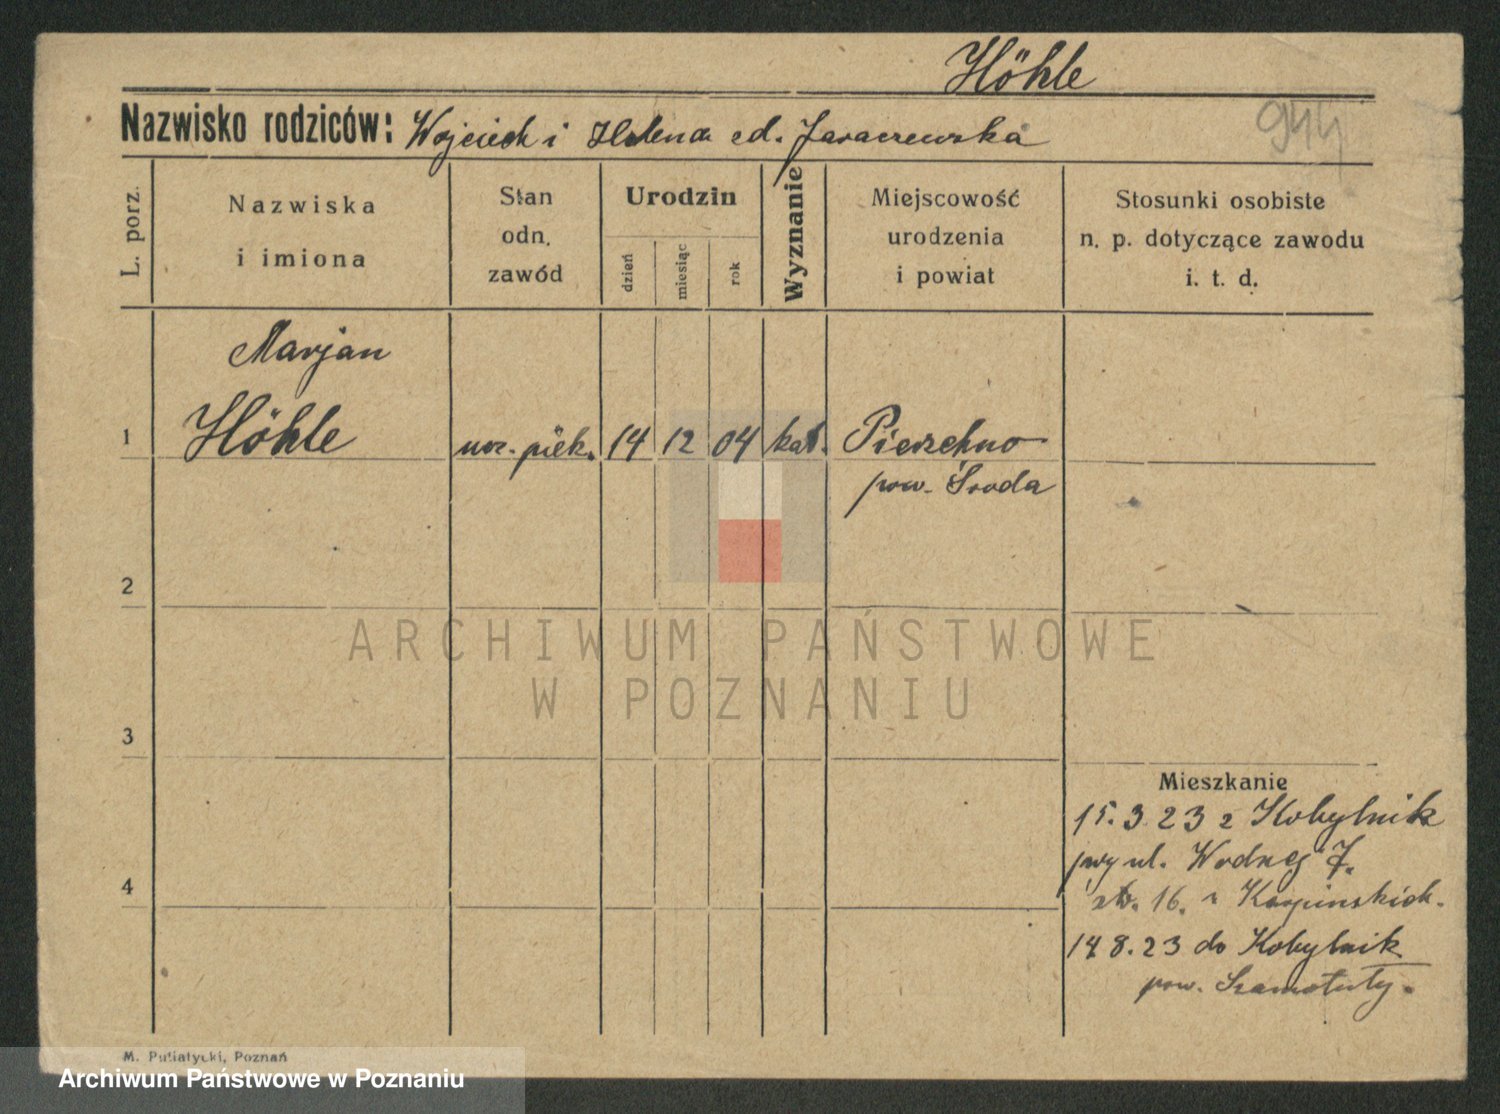 Höhle
944
Nazwisko rodziców: Wojciech i Helena zd. Jaraczewska
L. porz.
Nazwiska
i imiona
Stan
odn.
zawód
Urodzin
dzień
miesiąc
rok
Wyznanie
Miejscowość
urodzenia
i powiat
Stosunki osobiste
n. p. dotyczące zawodu
i. t. d.
Marjan
1 Höhle ucz. piek. 14 12 04 kat. Pierzchno
pow. Środa
2
ARCHIWUM PAŃSTWOWE
W POZNANIU
3
Mieszkanie
15.3.23 z Kobylnik
przy ul. Wodnej 7.
4
str. 16. u Karpinskich.
14 8.23 do Kobylnik
pow. Szamotuły.
M. Putiatycki, Poznań
Archiwum Państwowe w Poznaniu